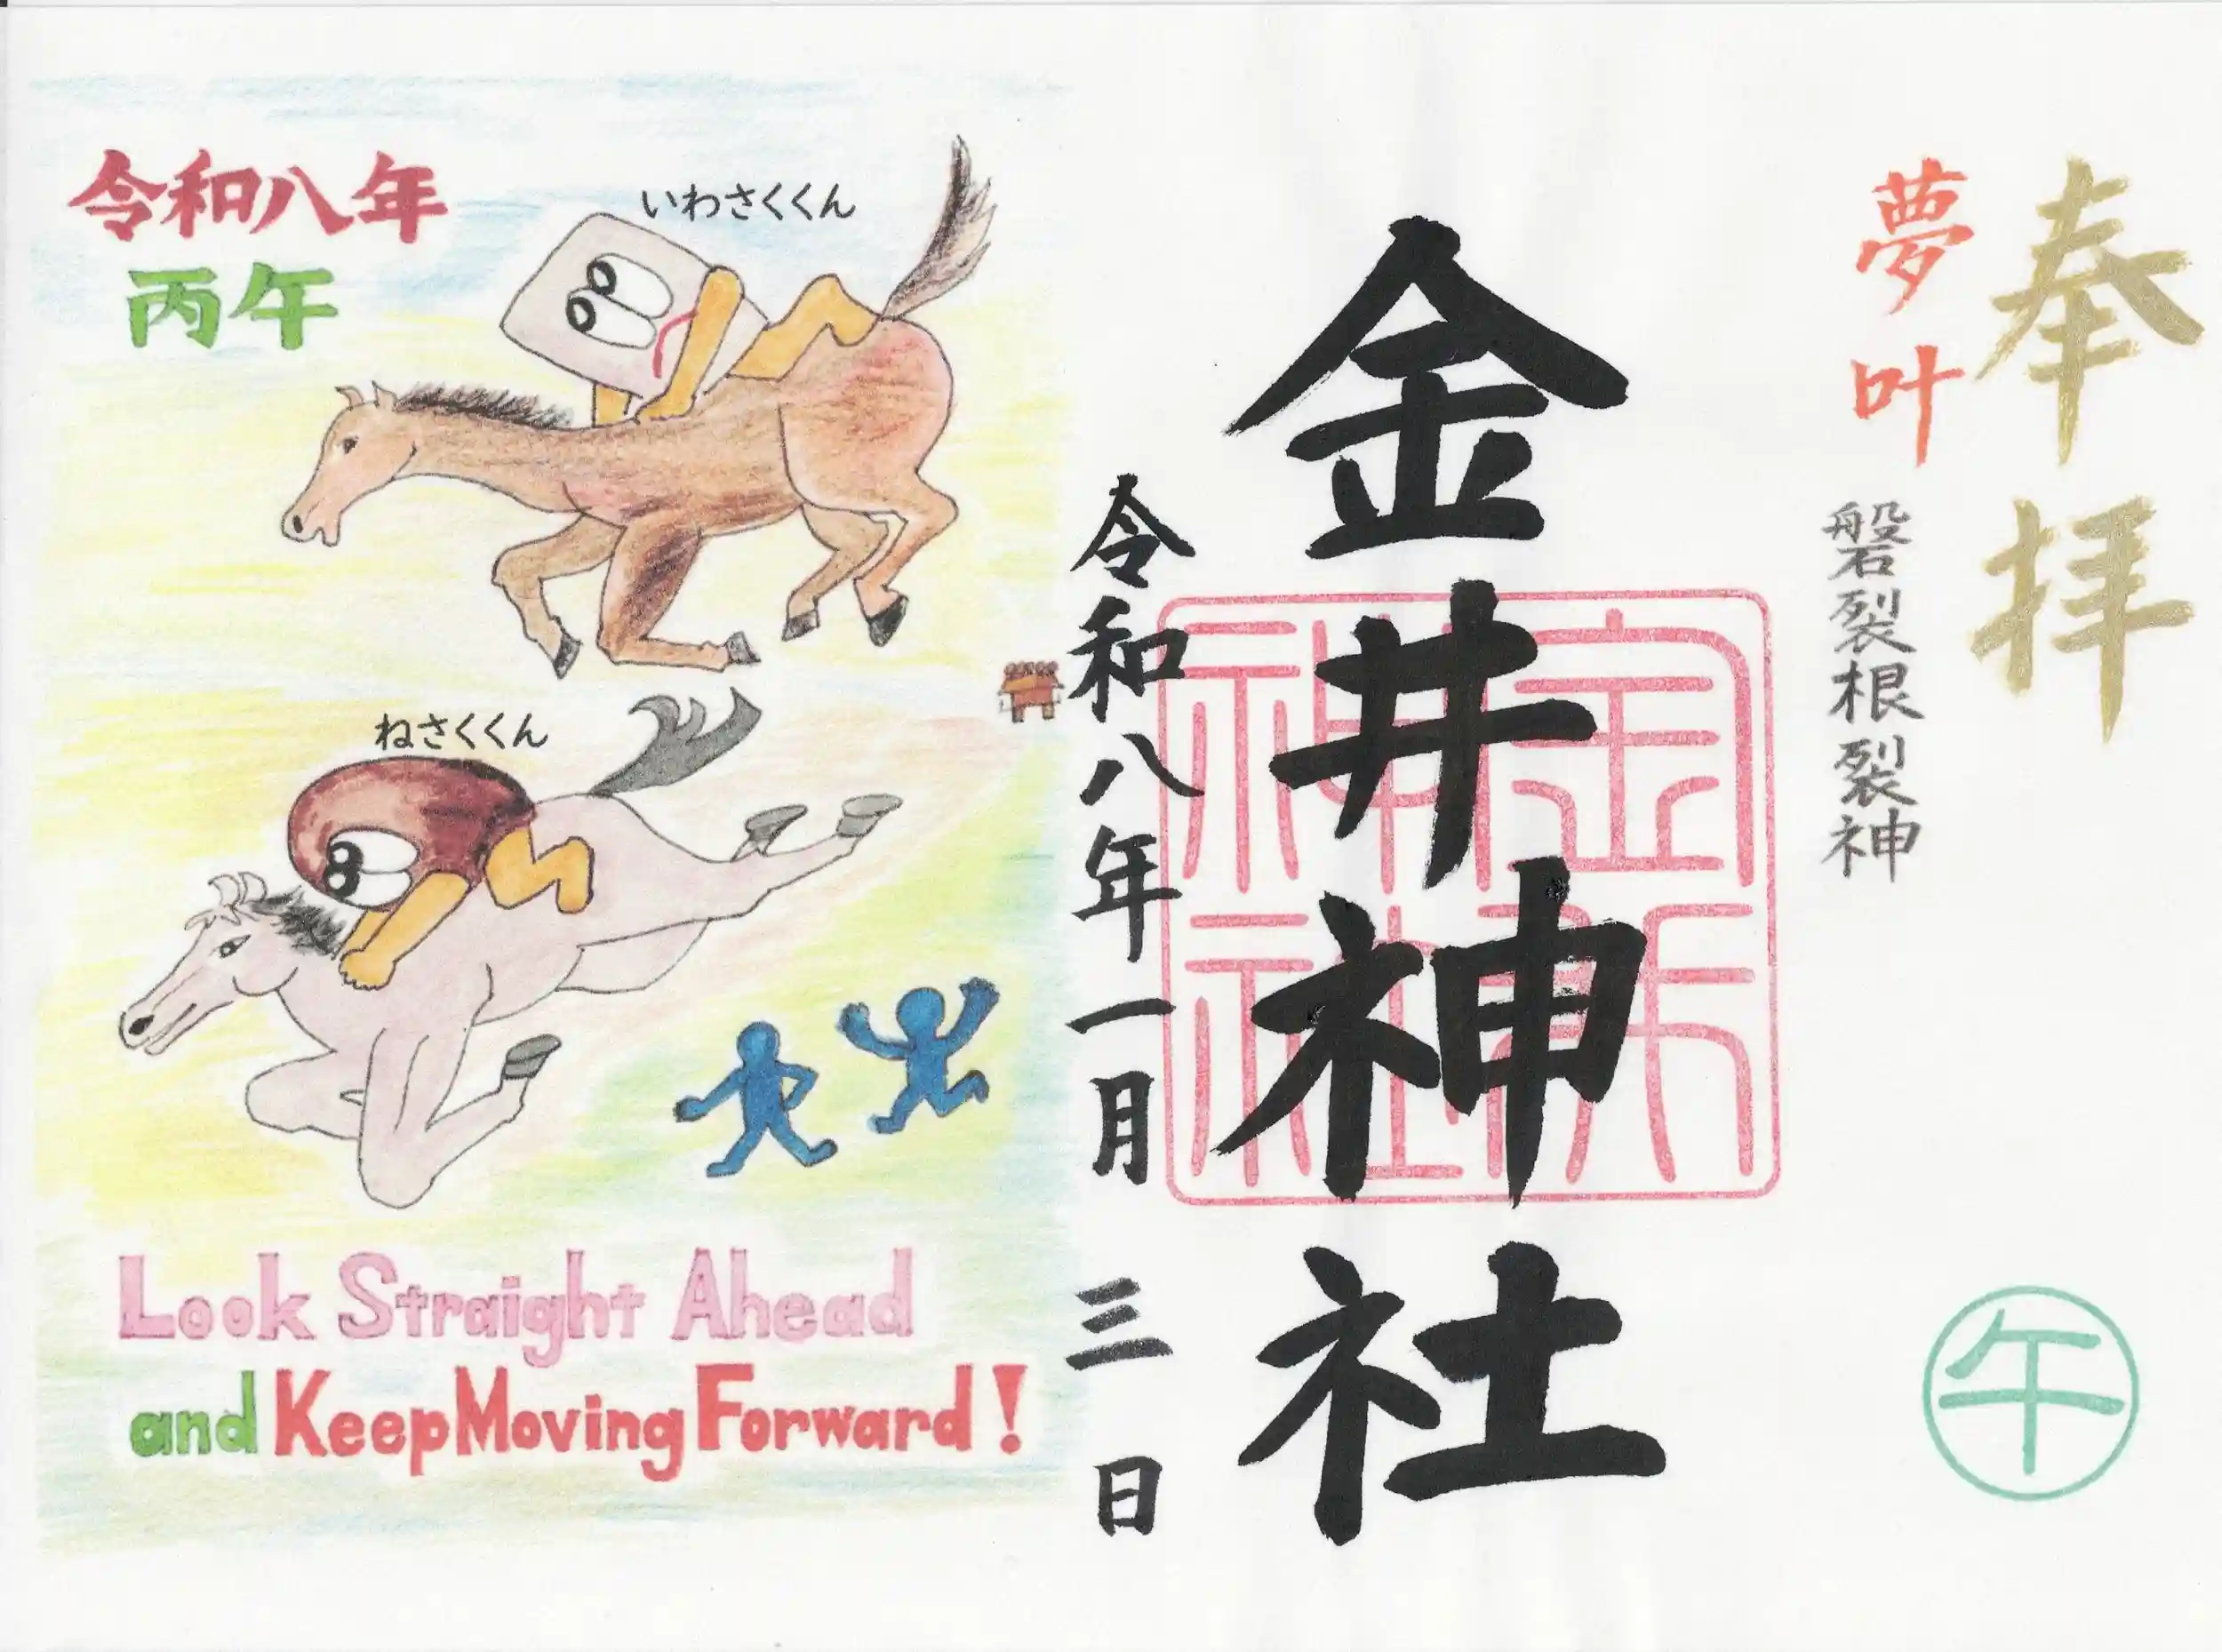 奉拝
夢叶
磐裂根裂神
午
金井神社
金井神社
令和八年一月三日
令和八年
丙午
いわさくくん
ねさくくん
Look Straight Ahead
and Keep Moving Forward!